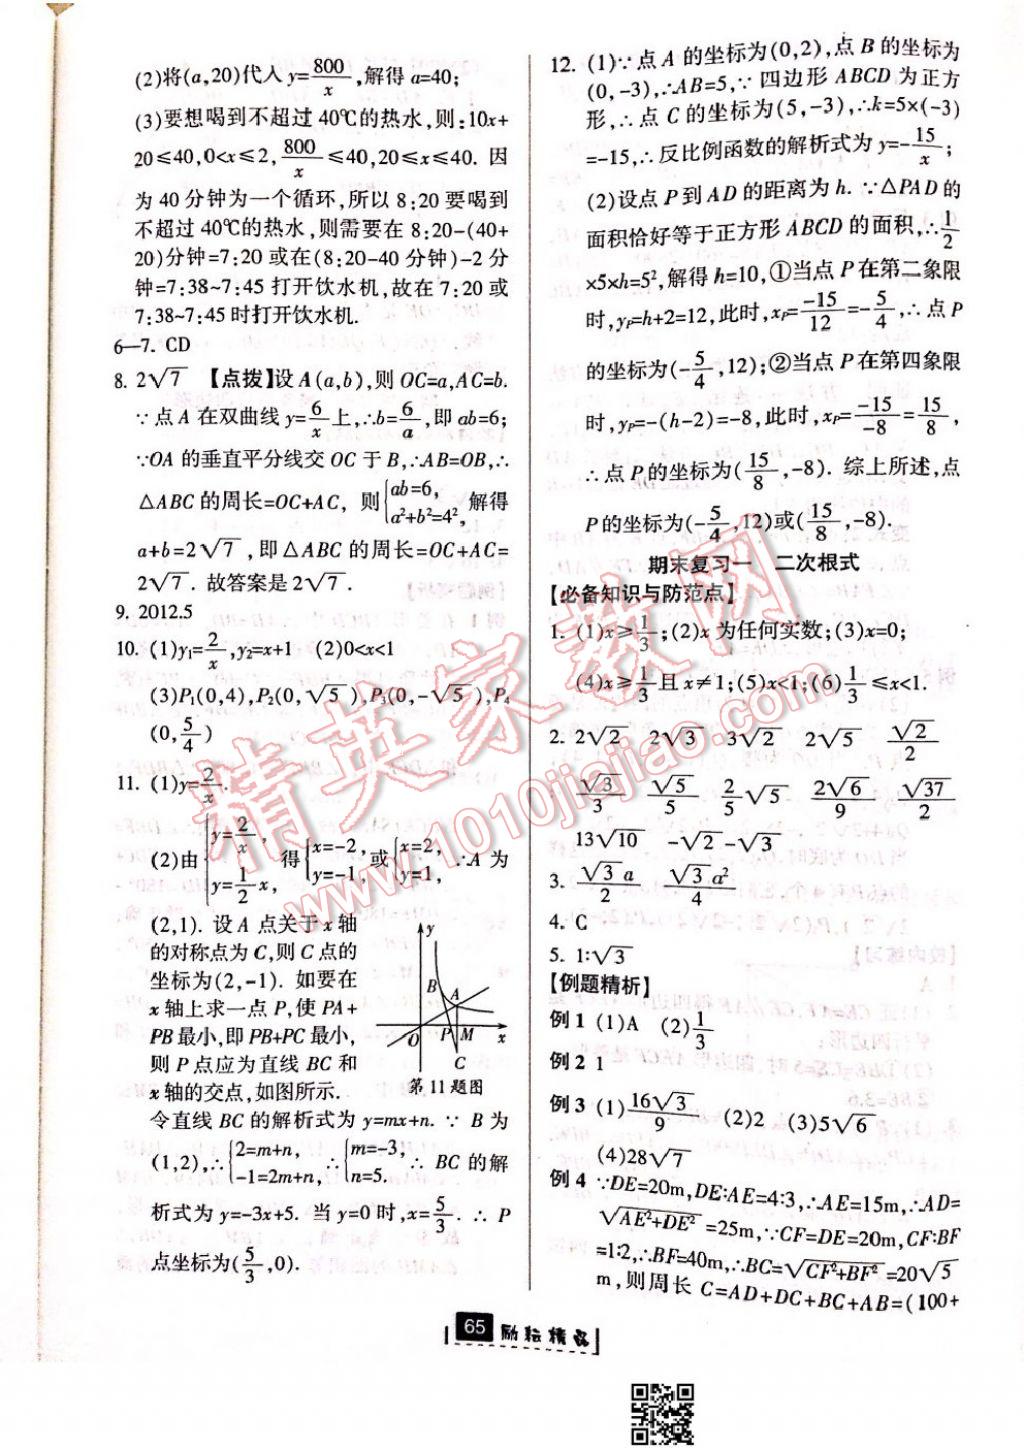 (2)将(a,20)代入y=800/x,解得a=40;
(3)要想喝到不超过40℃的热水,则:10x+
20≤40,0<x≤2,800/x≤40,20≤x≤40. 因
为40分钟为一个循环,所以8:20要喝到
不超过40℃的热水,则需要在8:20-(40+
20)分钟=7:20或在(8:20-40分钟)-2分
钟=7:38~7:45打开饮水机,故在7:20或
7:38~7:45时打开饮水机.
6—7. CD
8. 2√7 【点拨】设A(a,b),则OC=a,AC=b.
∵点A在双曲线y=6/x上,∴b=6/a,即ab=6;
∵OA的垂直平分线交OC于B,∴AB=OB,∴
△ABC的周长=OC+AC, 则{ab=6, a²+b²=4², 解得
a+b=2√7,即△ABC的周长=OC+AC=
2√7. 故答案是2√7.
9. 2012.5
10. (1)y₁=2/x,y₂=x+1 (2)0<x<1
(3)P₁(0,4),P₂(0,√5),P₃(0,-√5),P₄
(0,5/4)
11. (1)y=2/x.
(2)由{y=2/x, y=1/2x, 得{x=-2, y=-1, 或{x=2, y=1, ∴A为
(2,1). 设A点关于x轴
的对称点为C,则C点的
坐标为(2,-1). 如要在
x轴上求一点P,使PA+
PB最小,即PB+PC最小,
则P点应为直线BC和
x轴的交点,如图所示.
y
B
A
O
P
M
x
C
第11题图
令直线BC的解析式为y=mx+n. ∵B为
(1,2),∴{2=m+n, -1=2m+n, ∴{m=-3, n=5. ∴BC的解
析式为y=-3x+5. 当y=0时,x=5/3. ∴P
点坐标为(5/3,0).
12. (1)∵点A的坐标为(0,2),点B的坐标为
(0,-3),∴AB=5,∵四边形ABCD为正方
形,∴点C的坐标为(5,-3),∴k=5×(-3)
=-15,∴反比例函数的解析式为y=-15/x;
(2)设点P到AD的距离为h. ∵△PAD的
面积恰好等于正方形ABCD的面积,∴1/2
×5×h=5²,解得h=10,①当点P在第二象限
时,yP=h+2=12,此时,xP=-15/12=-5/4,∴点P
的坐标为(-5/4,12);②当点P在第四象限
时,yP=-(h-2)=-8,此时,xP=-15/-8=15/8,
∴点P的坐标为(15/8,-8). 综上所述,点
P的坐标为(-5/4,12)或(15/8,-8).
期末复习一 二次根式
【必备知识与防范点】
1. (1)x≥1/3;(2)x为任何实数;(3)x=0;
(4)x≥1/3且x≠1;(5)x<1;(6)1/3≤x<1.
2. 2√2 2√3 3√2 2√5 √2/2
√3/3 √5/5 2/5√5 2√6/9 √37/2
13√10 -√2-√3
3. √3a/2 √3a²/4
4. C
5. 1:√3
【例题精析】
例1 (1)A (2)1/3
例2 1
例3 (1)16√3/9 (2)2 (3)5√6
(4)28√7
例4 ∵DE=20m,DE:AE=4:3,∴AE=15m,∴AD=
√AE²+DE²=25m,∵CF=DE=20m,CF:BF
=1:2,∴BF=40m,∴BC=√CF²+BF²=20√5
m,则周长C=AD+DC+BC+AB=(100+
65 励耘精品
精英家教网
www.1010jiajiao.com